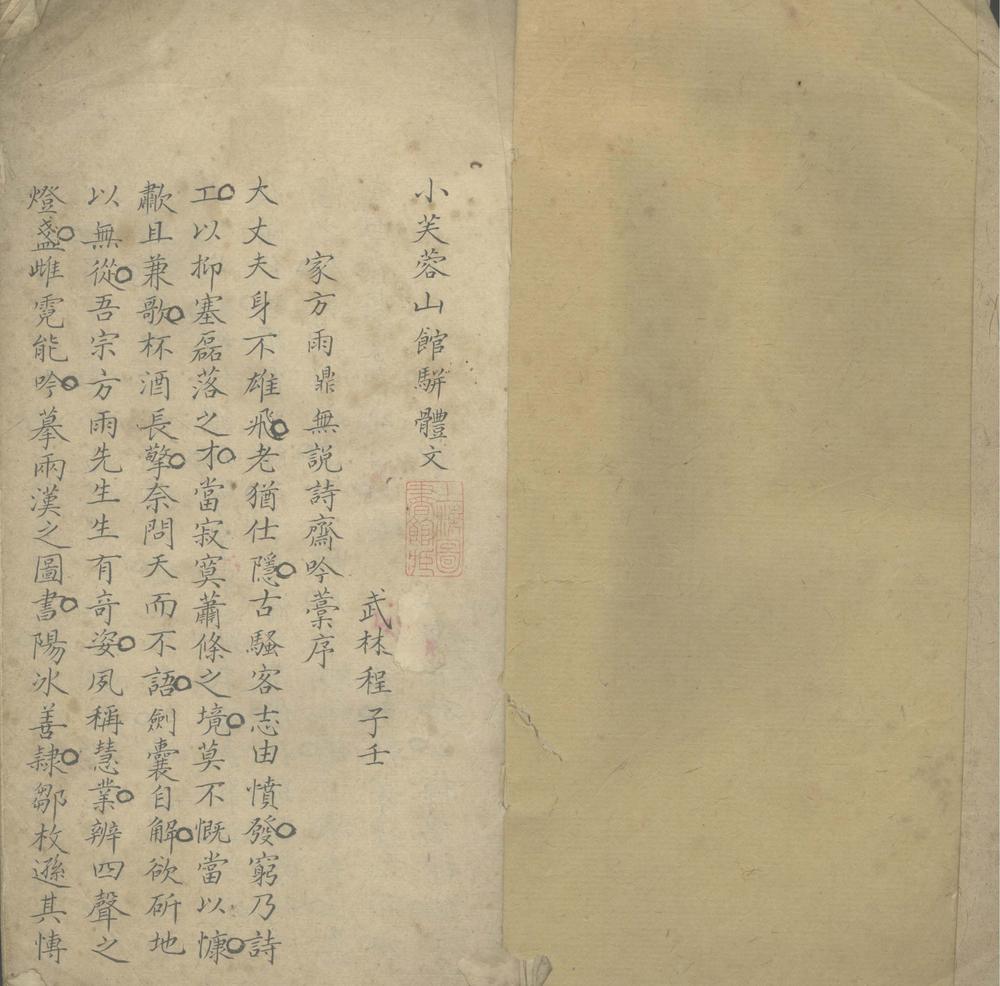 小芙蓉山館駢體文
上海圖書館藏
武林程子壬
家方雨鼎無説詩齋吟藁序
大丈夫身不雄飛。老猶仕隱。古騷客志由憤發。窮乃詩
工。以抑塞磊落之才。當寂寞蕭條之境。莫不慨當以慷。
歗且兼歌。杯酒長擎。奈問天而不語。劍囊自解。欲斫地
以無從。吾宗方雨先生生有竒姿。夙稱慧業。辨四聲之
燈盞。雌霓能吟。摹兩漢之圖書。陽冰善隸。鄒枚遜其愽